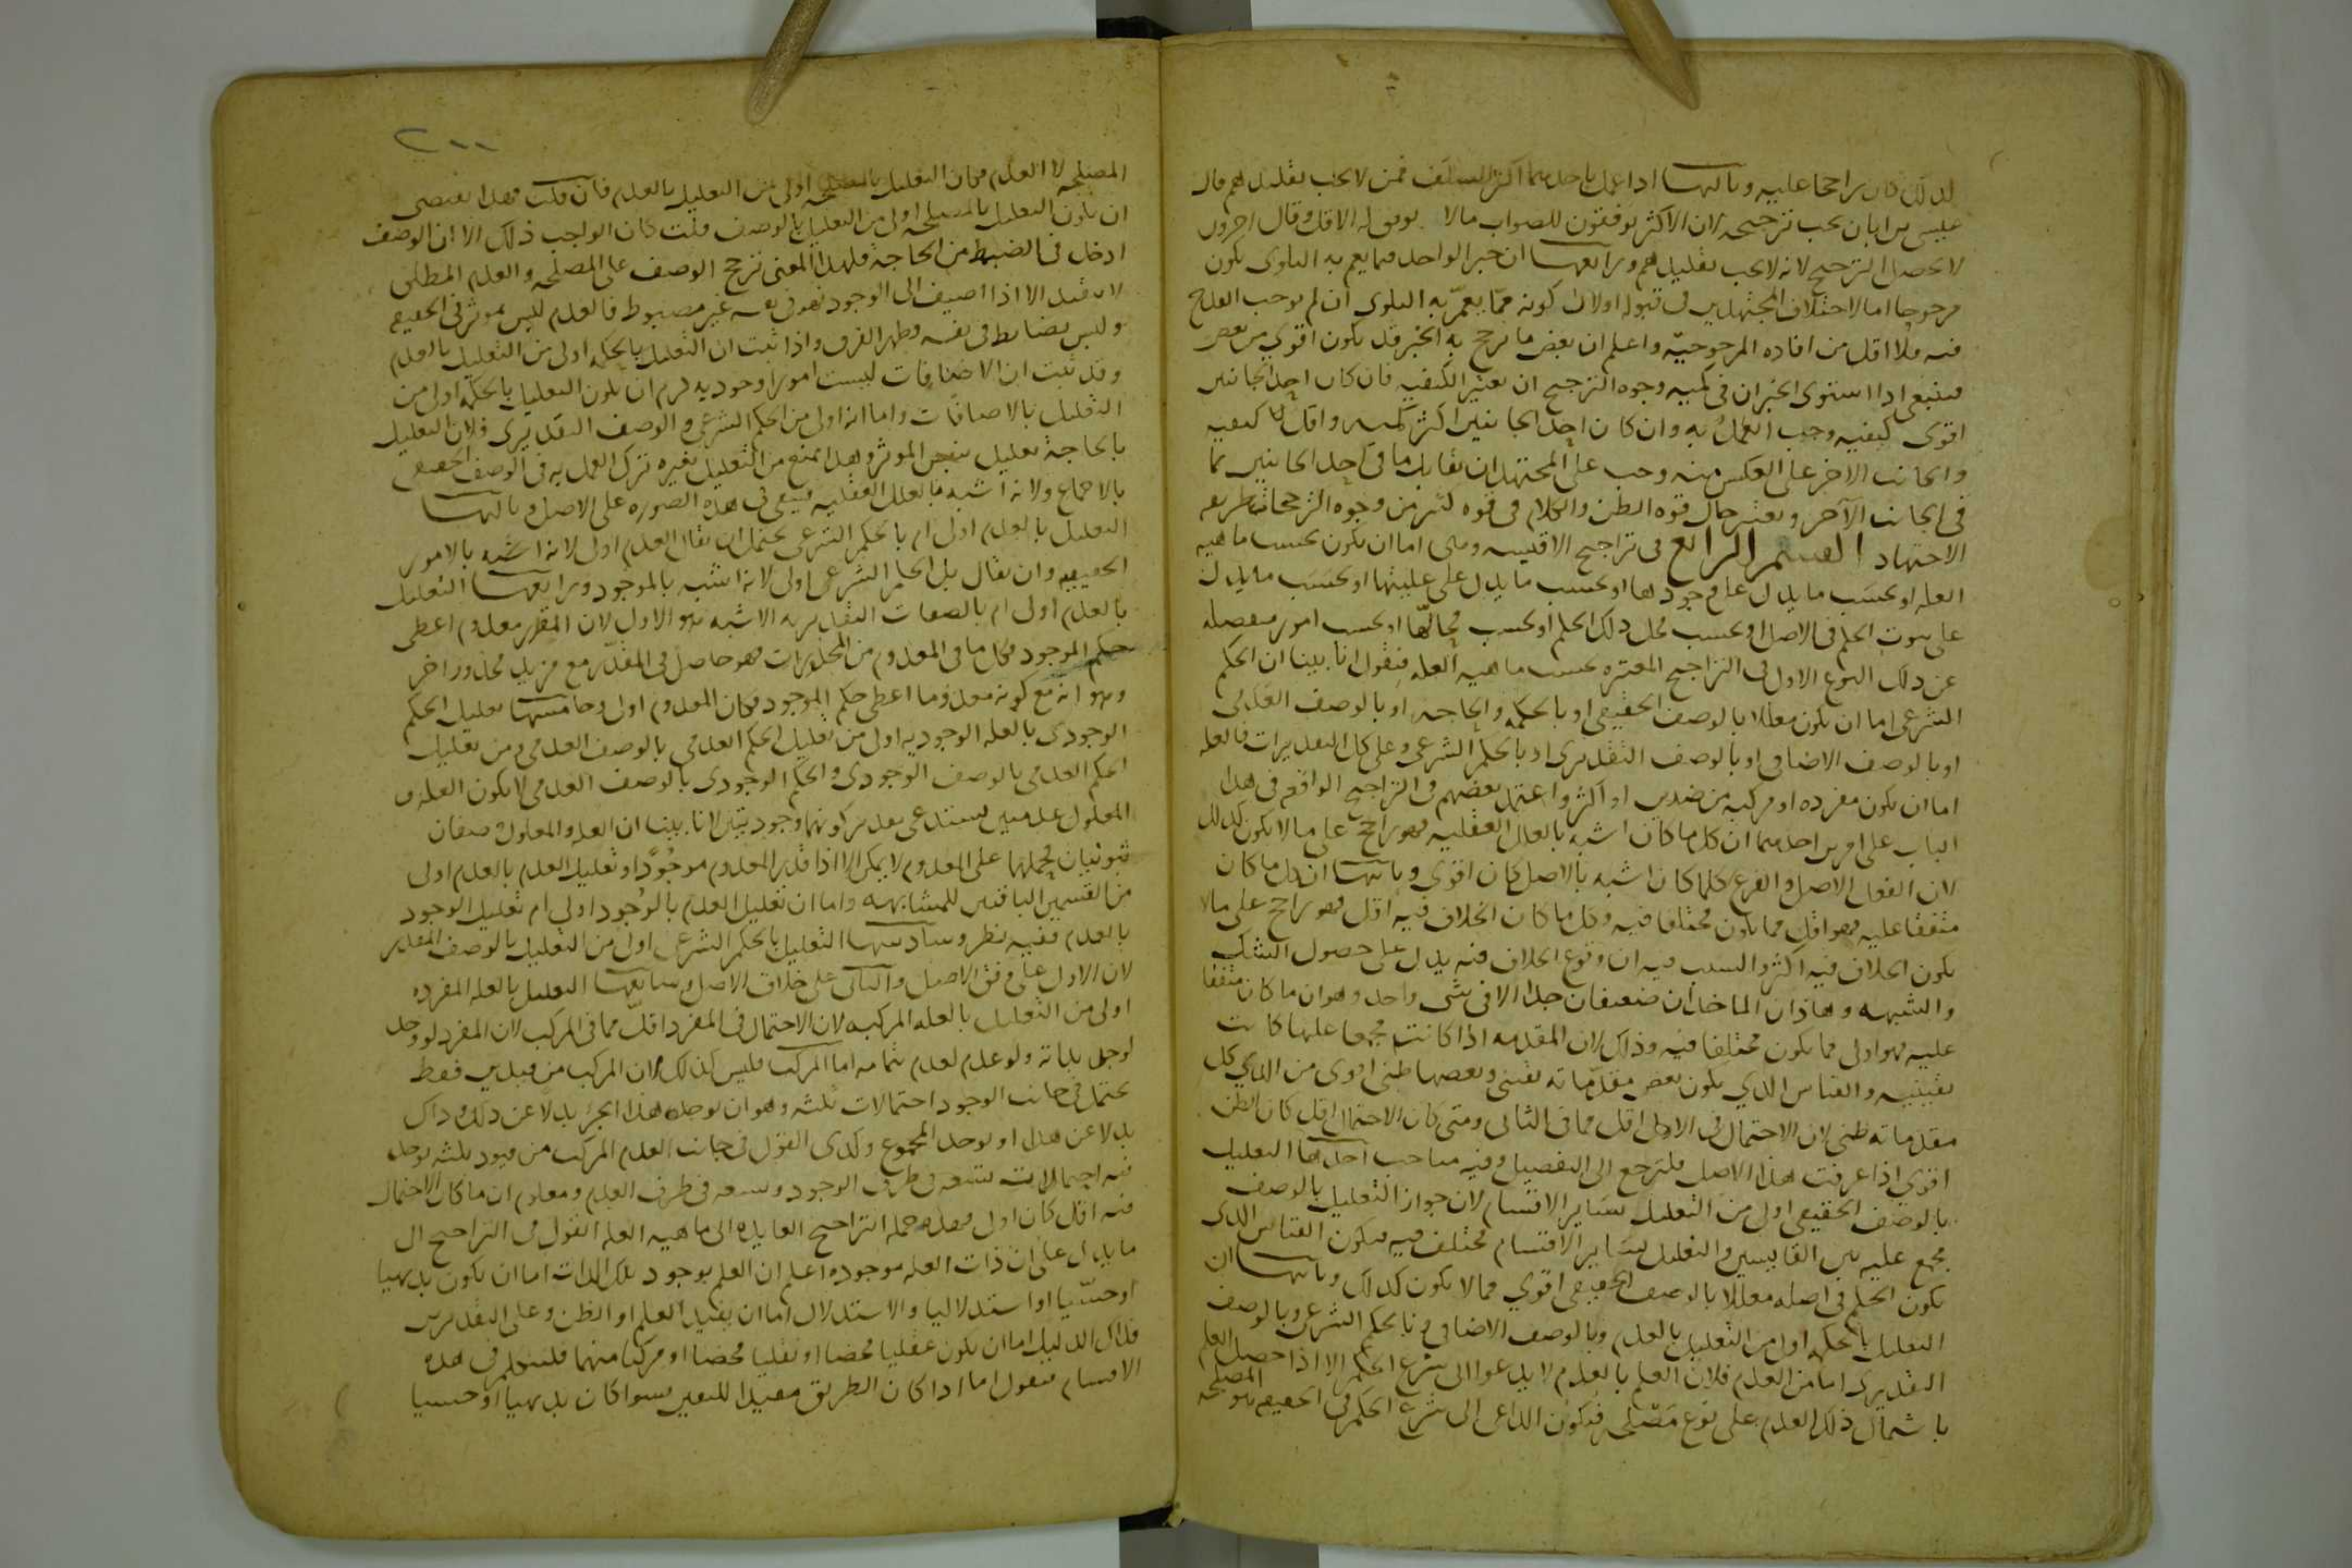 لذلك كان راجحا عليه وثالثها اذا عمل باحدهما اكثر السلف ممن لا يجب تقليدهم قال
عيسى بن ابان يجب ترجيحه لان الاكثر يوفقون للصواب مالا يوفق له الاقل وقال اخرون
لا يحصل الترجيح لانه لا يجب تقليدهم ورابعها ان خبر الواحد فيما يعم به البلوى يكون
مرجوحا اما لاختلاف المجتهدين في قبوله اولان كونه مما يعم به البلوى ان لم يوجب القدح
فيه فلا اقل من افاده المرجوحيّه واعلم ان بعض ما يرجح به الخبر قد يكون اقوي من بعض
فينبغي اذا استوى الخبران في كميه وجوه الترجيح ان تعتبر الكيفيه فان كان احد الجانبين
اقوى كيفيه وجب العمل به وان كان احد الجانبين اكثر كميه واقل كيفيه
والجانب الاخر على العكس منه وجب على المجتهد ان يقابل ما في احد الجانبين بما
في الجانب الآخر ويعتبر حال قوه الظن والكلام في قوه كثير من وجوه الترجيحات طريقه
الاجتهاد القسم الرابع في تراجيح الاقيسه وهي اما ان تكون بحسب ماهيه
العله او بحسب ما يدل على وجودها او بحسب ما يدل على عليتها او بحسب ما يدل
على ثبوت الحكم في الاصل او بحسب محل ذلك الحكم او بحسب محالّها او بحسب امور منفصله
عن ذلك النوع الاول في التراجيح المعتبره بحسب ماهيه العله فنقول انا بينا ان الحكم
الشرعي اما ان يكون معللا بالوصف الحقيقي او بالحكمه والحاجه او بالوصف العدمي
او بالوصف الاضافي او بالوصف التقديرى او بالحكم الشرعي وعلى كل التقديرات فالعله
اما ان تكون مفرده او مركبه من قيدين او اكثر واعتمد بعضهم في التراجيح الواقعه في هذا
الباب على امرين احدهما ان كل ما كان اشبه بالعلل العقليه فهو راجح على ما لا يكون كذلك
لان الفعل الاصل والفرع كلما كان اشبه بالاصل كان اقوى وثانيهما ان كل ما كان
متفقا عليه فهو اقل مما يكون مختلفا فيه وكل ما كان الخلاف فيه اقل فهو راجح على مالا
يكون الخلاف فيه اكثر والسبب فيه ان وقوع الخلاف فيه يدل على حصول الشك
والشبهه وهاذان الماخذان ضعيفان جدا الا في شي واحد وهو ان ما كان متفقا
عليه فهو اولى مما يكون مختلفا فيه وذلك لان المقدمه اذا كانت مجمعا عليها كانت
يقينيه والقياس الذي يكون بعض مقدّماته يقيني وبعضها ظني اقوى من الذي كل
مقدماته ظني لان الاحتمال في الاول اقل مما في الثاني ومتى كان الاحتمال اقل كان الظن
اقوي اذا عرفت هذا الاصل فلنرجع الى التفصيل وفيه مباحث احدها التعليل
بالوصف الحقيقي اولى من التعليل بسَاير الاقسام لان جواز التعليل بالوصف
مجمع عليه بين القايسين والتعليل بسَاير الاقسام مختلف فيه فيكون القياس الذي
يكون الحكم في اصله معللا بالوصف الحقيقي اقوي مما لا يكون كذلك وثانيها ان
التعليل بالحكمه اولى من التعليل بالعدم وبالوصف الاضافي وبالحكم الشرعي وبالوصف
التقديرى اما من العدم فلان العلم بالعدم لا يدعوا الى شرع الحكم الا اذا حصل العلم
باشتمال ذلك العدم على نوع مصلحه فيكون الداعى الى شرع الحكم في الحقيقه هو المصلحه
٢٠٠
المصلحه لا العدم فكان التعليل بالمصلحه اولى من التعليل بالعدم فان قلت فهذا يقتضى
ان يكون التعليل بالمصلحه اولى من التعليل بالوصف قلت كان الواجب ذلك الا ان الوصف
ادخل في الضبط من الحاجة فلهذا المعنى ترجح الوصف على المصلحه والعدم المطلق
لا يقيد الا اذا اضيف الى الوجود فهو في نفسه غير مضبوط فالعدم ليس بموثر في الحقيقه
وليس بضابط في نفسه فظهر الفرق واذا ثبت ان التعليل بالحكمه اولى من التعليل بالعدم
وقد ثبت ان الاضافات ليست امورا وجوديه لزم ان يكون التعليل بالحكمه اولى من
التعليل بالاضافات واما انه اولى من الحكم الشرعي والوصف التقديرى فلان التعليل
بالحاجة تعليل بنفس الموثر وهذا يمنع من التعليل بغيره ترك العمل به في الوصف الحقيقي
بالاجماع ولانه اشبه بالعلل العقليه فيبقى في هذه الصوره على الاصل وثالثها
التعليل بالعدم اولى ام بالحكم الشرعي يحتمل ان يقال العدم اولى لانه اشبه بالامور
الحقيقيه وان يقال بل الحكم الشرعي اولى لانه اشبه بالموجود ورابعها التعليل
بالعدم اولى ام بالصفات التقديريه الاشبه هو الاول لان المقدر معدوم اعطى
حكم الموجود فكل ما في المعدوم من المحذورات فهو حاصل في المقدّر مع مزيد محذور اخر
وهو انه مع كونه معدوما اعطى حكم الموجود فكان المعدوم اولى وخامسها تعليل الحكم
الوجودى بالعله الوجوديه اولى من تعليل الحكم العدمي بالوصف العدمي ومن تعليل
الحكم العدمي بالوصف الوجودى والحكم الوجودى بالوصف العدمي لا يكون العله و
المعلول عدميين يستدعى تقدير كونهما وجوديين لانا بينا ان العله والمعلول وصفان
ثبوتيان فحملهما على المعدوم لا يمكن الا اذا قدر المعدوم موجودا وتعليل العدم بالعدم اولى
من القسمين الباقيين للمشابهه واما ان تعليل العدم بالوجود اولى ام تعليل الوجود
بالعدم ففيه نظر وسادسها التعليل بالحكم الشرعي اولى من التعليل بالوصف المقدر
لان الاول على وفق الاصل والثاني على خلاف الاصل وسابعها التعليل بالعله المفرده
اولى من التعليل بالعله المركبه لان الاحتمال في المفرد اقل مما في المركب لان المفرد لو وجد
لوجد بذاته ولو عدم لعدم بتمامه اما المركب فليس كذلك لان المركب من قيدين فقط
يحتمل في جانب الوجود احتمالات ثلثه وهو ان يوجد هذا الجزء بدلا عن ذلك وذاك
بدلا عن هذا او يوجد المجموع وكذى القول في جانب العدم المركب من قيود ثلثه يوجد
فيه احتمالات تسعه في طرف الوجود وتسعه في طرف العدم ومعلوم ان ما كان الاحتمال
فيه اقل كان اولى فهذه جمله التراجيح العايده الى ماهيه العله القول في التراجيح ال
ما يدل على ان ذات العله موجوده اعلم ان العلم بوجود تلك الذات اما ان يكون بديهيا
او حسّيا او استدلاليا والاستدلال اما ان يفيد العلم او الظن وعلى التقديرين
فذلك الدليل اما ان يكون عقليا محضا او نقليا محضا او مركبا منهما فلنتكلم في هذه
الاقسام فنقول اما اذا كان الطريق مفيدا لليقين سوا كان بديهيا او حسيا